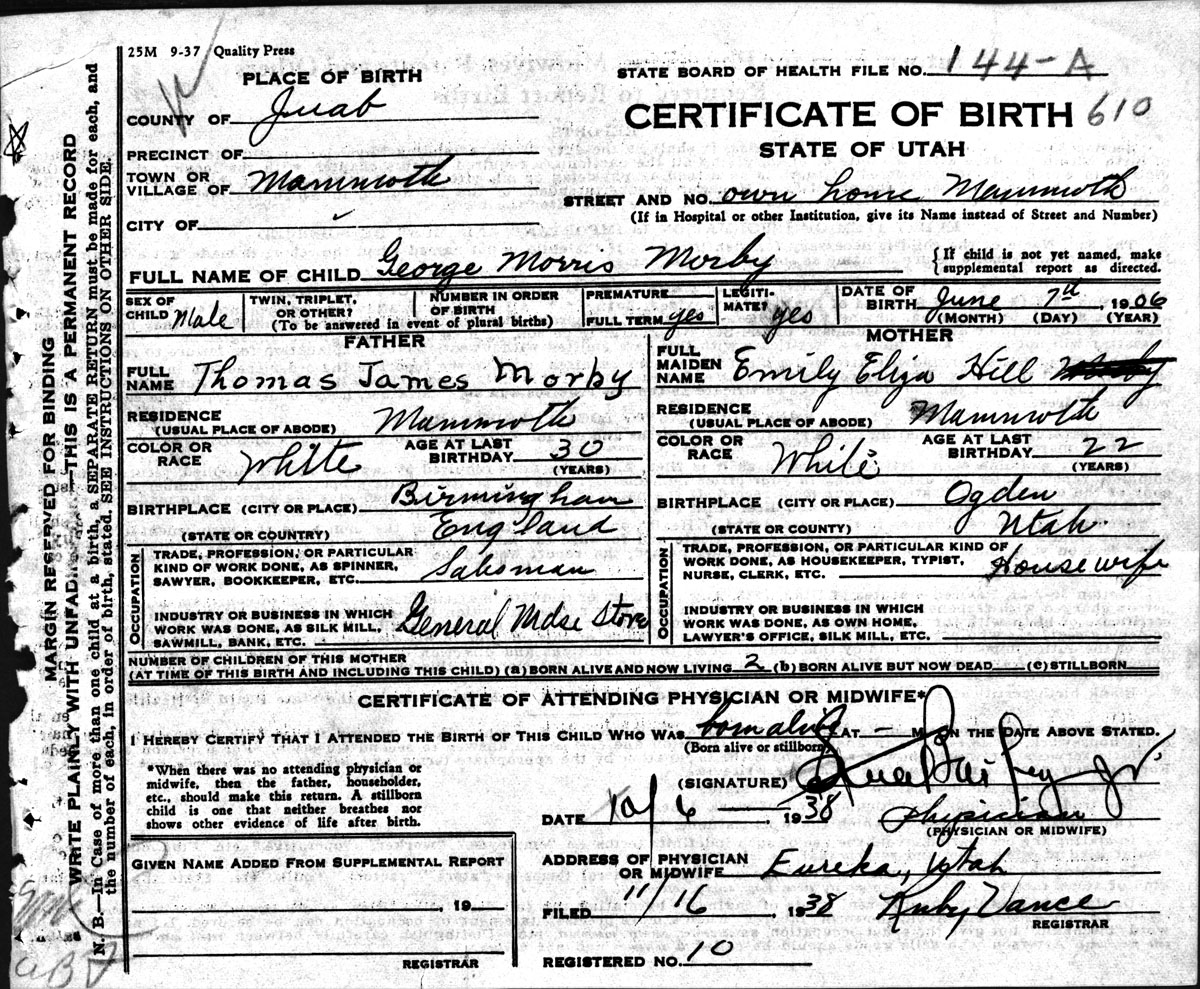 25M 9-37 Quality Press
PLACE OF BIRTH
COUNTY OF Juab
PRECINCT OF
TOWN OR VILLAGE OF Mammoth
CITY OF
STATE BOARD OF HEALTH FILE NO. 144-A
CERTIFICATE OF BIRTH 610
STATE OF UTAH
STREET AND NO. own home Mammoth
(If in Hospital or other Institution, give its Name instead of Street and Number)
FULL NAME OF CHILD George Morris Morby
{If child is not yet named, make
supplemental report as directed.
SEX OF CHILD Male
TWIN, TRIPLET, OR OTHER?
NUMBER IN ORDER OF BIRTH
(To be answered in event of plural births)
PREMATURE
FULL TERM yes
LEGITI-MATE? yes
DATE OF BIRTH June 7th, 1906
(MONTH) (DAY) (YEAR)
FATHER
FULL NAME Thomas James Morby
RESIDENCE (USUAL PLACE OF ABODE) Mammoth
COLOR OR RACE White
AGE AT LAST BIRTHDAY 30 (YEARS)
BIRTHPLACE (CITY OR PLACE) Birmingham
(STATE OR COUNTRY) England
OCCUPATION
TRADE, PROFESSION, OR PARTICULAR
KIND OF WORK DONE, AS SPINNER,
SAWYER, BOOKKEEPER, ETC. Salesman
INDUSTRY OR BUSINESS IN WHICH
WORK WAS DONE, AS SILK MILL,
SAWMILL, BANK, ETC. General Mdse Store
MOTHER
FULL MAIDEN NAME Emily Eliza Hill
RESIDENCE (USUAL PLACE OF ABODE) Mammoth
COLOR OR RACE White
AGE AT LAST BIRTHDAY 22 (YEARS)
BIRTHPLACE (CITY OR PLACE) Ogden
(STATE OR COUNTY) Utah
OCCUPATION
TRADE, PROFESSION, OR PARTICULAR KIND OF
WORK DONE, AS HOUSEKEEPER, TYPIST,
NURSE, CLERK, ETC. Housewife
INDUSTRY OR BUSINESS IN WHICH
WORK WAS DONE, AS OWN HOME,
LAWYER'S OFFICE, SILK MILL, ETC.
NUMBER OF CHILDREN OF THIS MOTHER
(AT TIME OF THIS BIRTH AND INCLUDING THIS CHILD) (a) BORN ALIVE AND NOW LIVING 2 (b) BORN ALIVE BUT NOW DEAD (c) STILLBORN
CERTIFICATE OF ATTENDING PHYSICIAN OR MIDWIFE*
I HEREBY CERTIFY THAT I ATTENDED THE BIRTH OF THIS CHILD WHO WAS born alive AT — M ON THE DATE ABOVE STATED.
(Born alive or stillborn)
*When there was no attending physician or
midwife, then the father, householder,
etc., should make this return. A stillborn
child is one that neither breathes nor
shows other evidence of life after birth.
(SIGNATURE)
DATE 10/6 1938 Physician
(PHYSICIAN OR MIDWIFE)
ADDRESS OF PHYSICIAN OR MIDWIFE Eureka, Utah
FILED 11/16 1938 Ruby Vance
REGISTRAR
REGISTERED NO. 10
GIVEN NAME ADDED FROM SUPPLEMENTAL REPORT
19
REGISTRAR
MARGIN RESERVED FOR BINDING
WRITE PLAINLY WITH UNFADING —THIS IS A PERMANENT RECORD
N. B.—In Case of more than one child at a birth, a SEPARATE RETURN must be made for each, and
the number of each, in order of birth, stated. SEE INSTRUCTIONS ON OTHER SIDE.